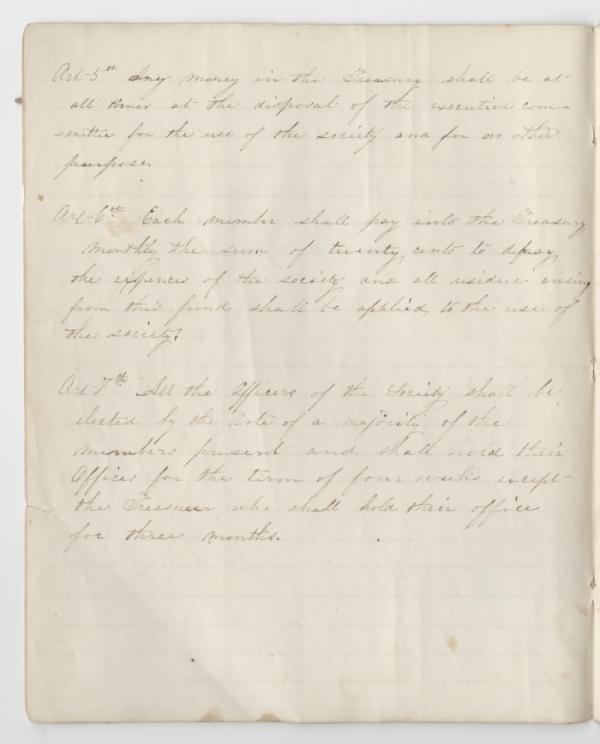 Art-5th Any money in the Treasury shall be at
all times at the disposal of the executive com-
-mittee for the use of the society and for no other
purpose.
Art-6th Each member shall pay into the Treasury
monthly the sum of twenty cents to defray
the expences of the society and all residue arising
from this fund shall be applied to the use of
the society.
Art-7th All the Officers of the Society shall be
elected by the vote of a majority of the
members present and shall hold their
Offices for the term of four weeks except
the Treasurer who shall hold their office
for three months.